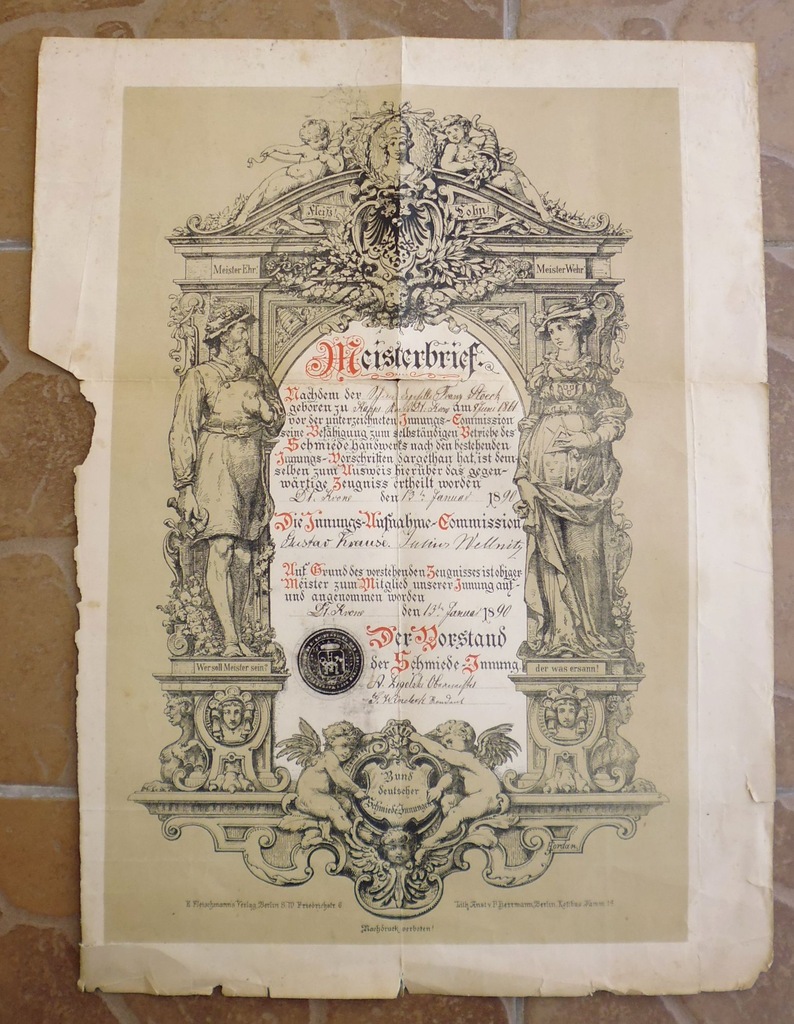 Fleiß! Lohn!
Meister Ehr! Meister Wehr!
Meisterbrief.
Nachdem der Franz Storch
geboren zu Kreis Dt. Krone am 8 Juni 1861
vor der unterzeichneten Innungs-Commission
seine Befähigung zum selbständigen Betriebe des
Schmiede Handwerks nach den bestehenden
Innungs-Vorschriften dargethan hat, ist dem-
selben zum Ausweis hierüber das gegen-
wärtige Zeugniss ertheilt worden
Dt. Krone den 13ten Januar 1890
Die Innungs-Aufnahme-Commission
Gustav Krause. Julius Wellnitz
Auf Grund des vorstehenden Zeugnisses ist obiger
Meister zum Mitglied unserer Innung auf-
und angenommen worden
Dt. Krone den 13ten Januar 1890
Der Vorstand
der Schmiede Innung
Wer soll Meister sein? der was ersann!
A. Obermeister
Rendant
Bund
deutscher
Schmiede-Innungen
Jordan
E. Fleischmann's Verlag, Berlin S.W. Friedrichstr. 6
Lith. Anst. v. P. Herrmann, Berlin,
Nachdruck verboten!